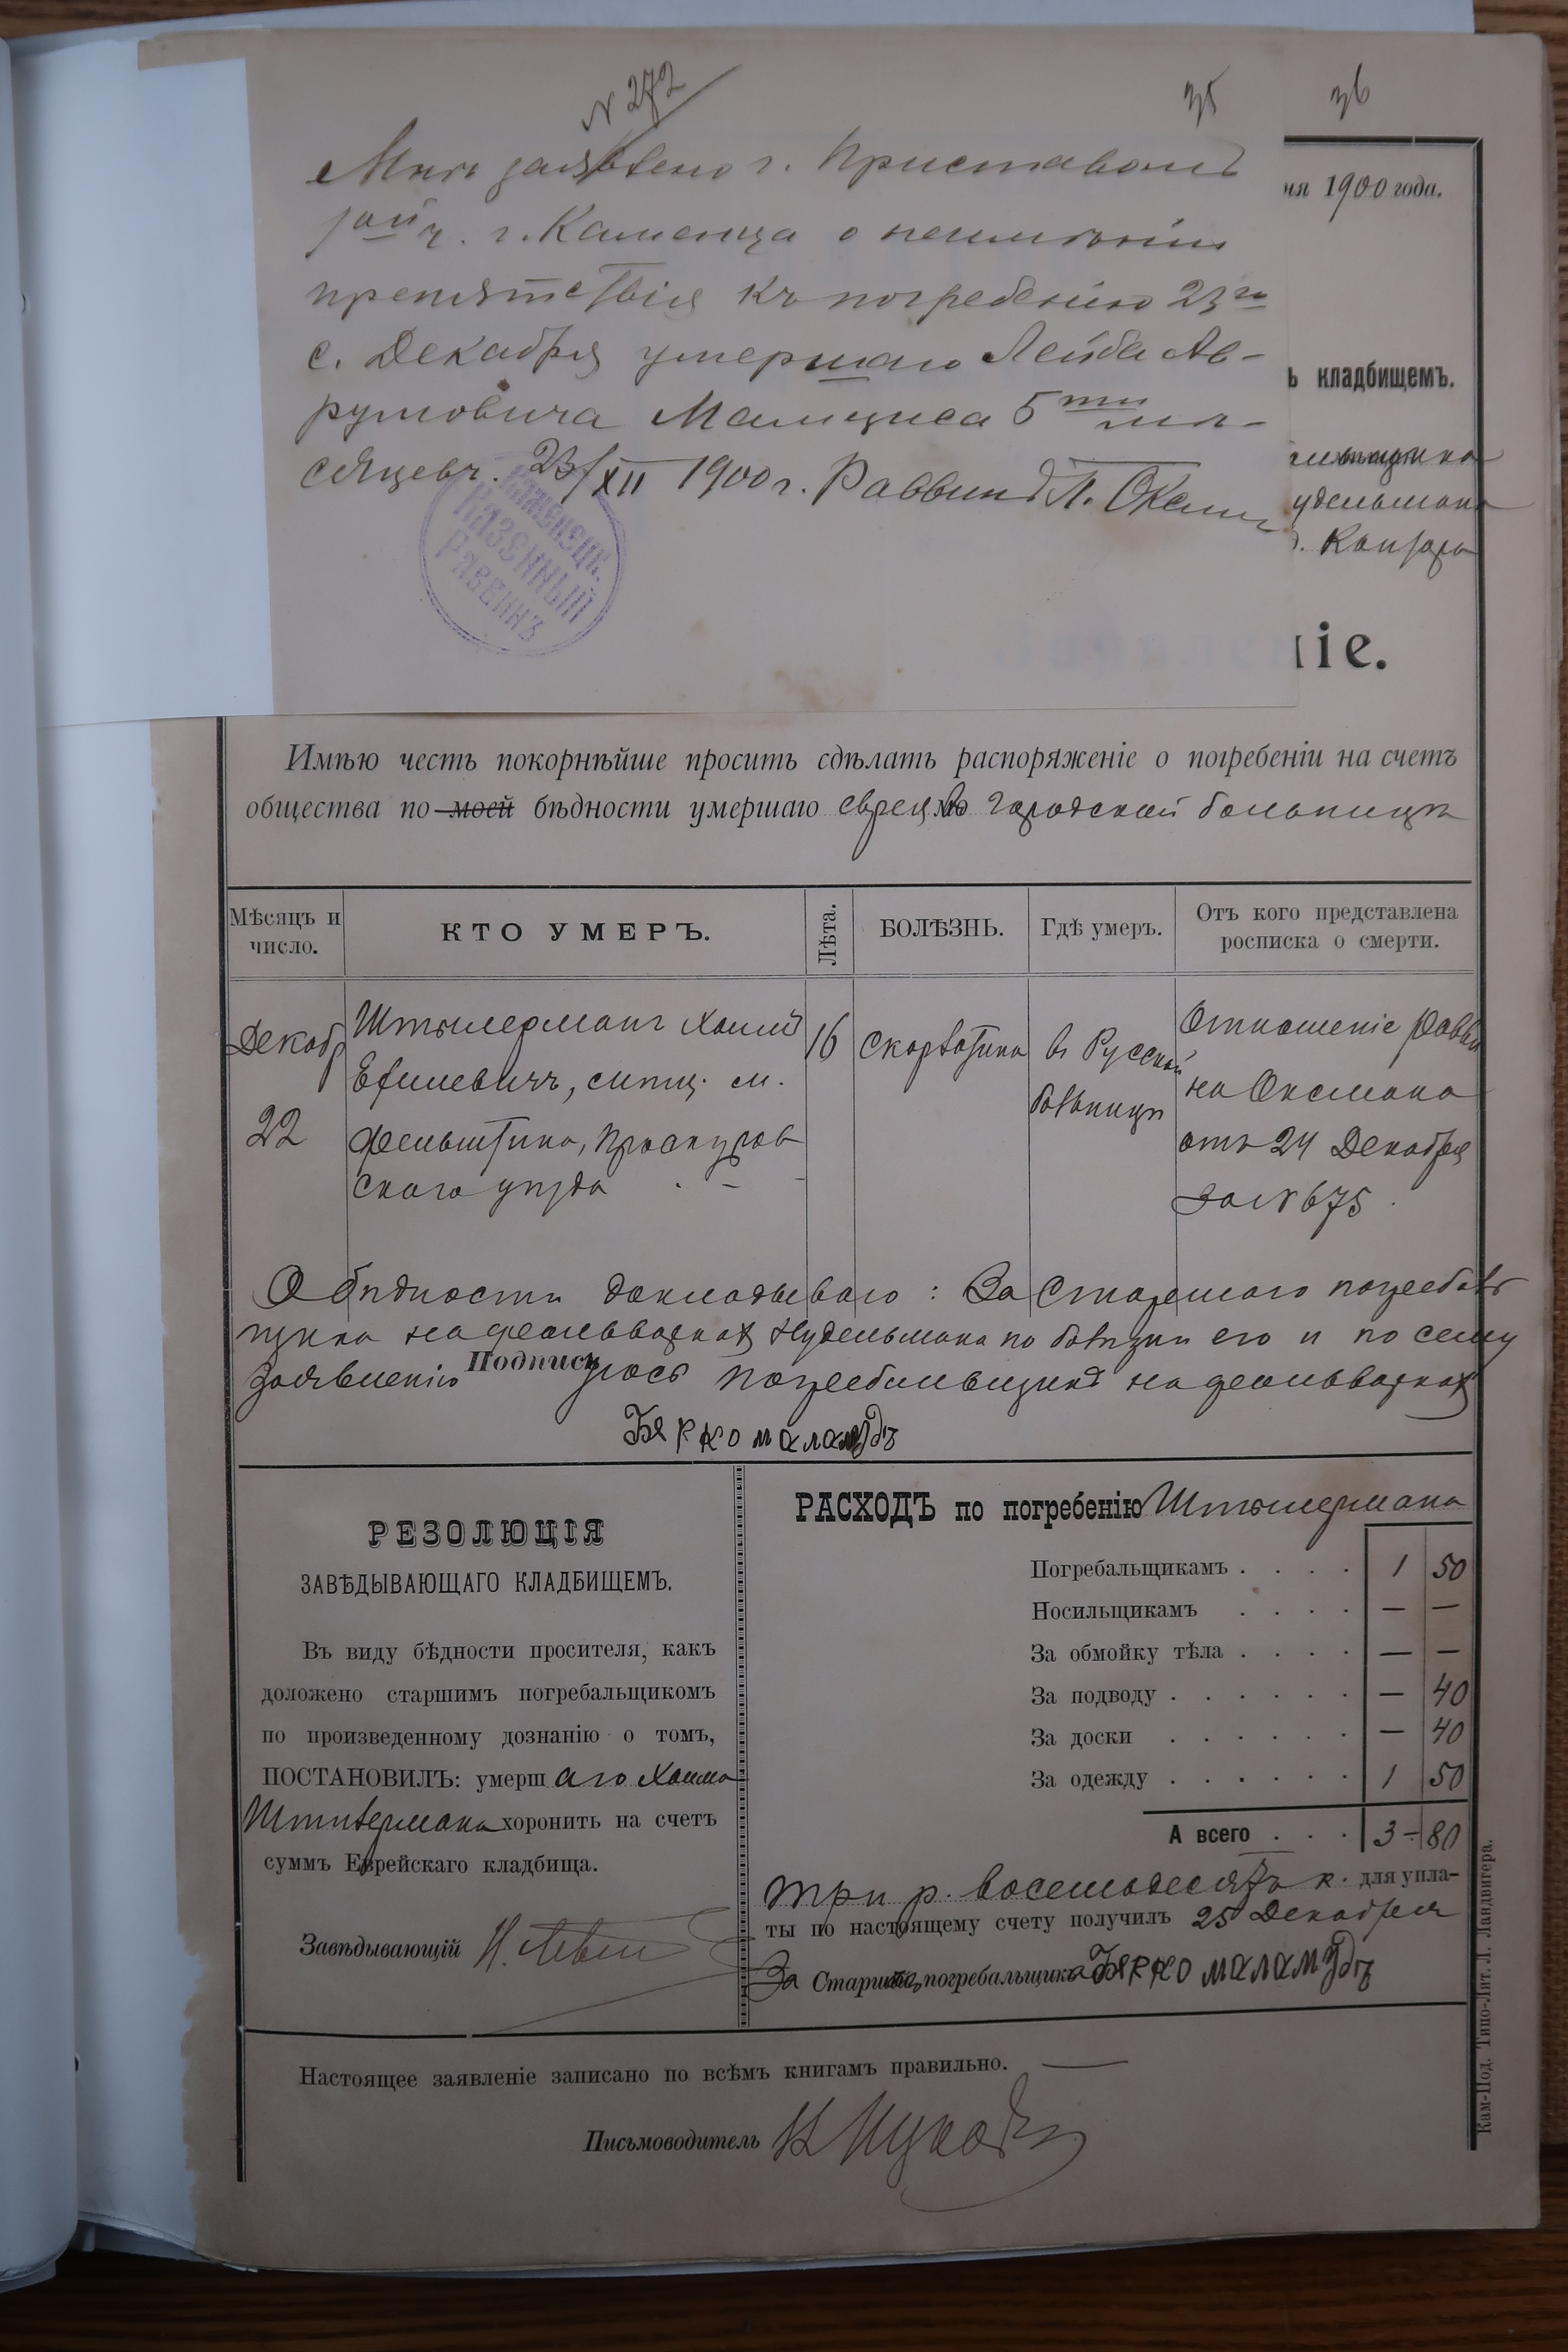 N 272
35
36
Мнѣ заявлено г. Приставомъ
1ой ч. г. Каменца о неимѣніи
препятствія къ погребенію 23го
с. Декабря умершаго Лейба Ав-
румовича Мамциса 5ти мѣ-
сяцевъ. 23/XII 1900 г. Раввинъ Л. Оксман
КАМЕНЕЦК.
КАЗЕННЫЙ
РАВВИНЪ
ня 1900 года.
ъ кладбищемъ.
удельмана
іе.
Имѣю честь покорнѣйше просить сдѣлать распоряженіе о погребеніи на счетъ
общества по моей бѣдности умершаго въ Городской больницѣ
Мѣсяцъ и число.
КТО УМЕРЪ.
Лѣта.
БОЛѢЗНЬ.
Гдѣ умеръ.
Отъ кого представлена
росписка о смерти.
Декабр
22
Штильерманъ Хаимъ
Ефилевичъ, м.
Фельштина, Проскуров
скаго уѣзда
16
Скорлатина
въ Русской
больницѣ
Отношеніе Равви
на Оксмана
отъ 24 Декабря
за N 675
О бѣдности докладываю: За Старшаго погребаль
щика на фольваркахъ Нудельмана по болѣзни его и по сему
заявленію Подпись юсь погребальщикъ на фольваркахъ
Бярко маламудъ
РЕЗОЛЮЦІЯ
ЗАВѢДЫВАЮЩАГО КЛАДБИЩЕМЪ.
Въ виду бѣдности просителя, какъ
доложено старшимъ погребальщикомъ
по произведенному дознанію о томъ,
ПОСТАНОВИЛЪ: умерш аго Хаима
Штильермана хоронить на счетъ
суммъ Еврейскаго кладбища.
Завѣдывающій
РАСХОДЪ по погребенію Штильермана
Погребальщикамъ . . . . 1 50
Носильщикамъ . . . . — —
За обмойку тѣла . . . . — —
За подводу . . . . . . — 40
За доски . . . . . . — 40
За одежду . . . . . . 1 50
А всего . . . 3 - 80
три р. восемьдесятъ к. для упла-
ты по настоящему счету получилъ 25 Декабря
За Старшаго погребальщика Бярко маламудъ
Настоящее заявленіе записано по всѣмъ книгамъ правильно. —
Письмоводитель
Кам-Под. Типо-Лит. Л. Ландвигера.